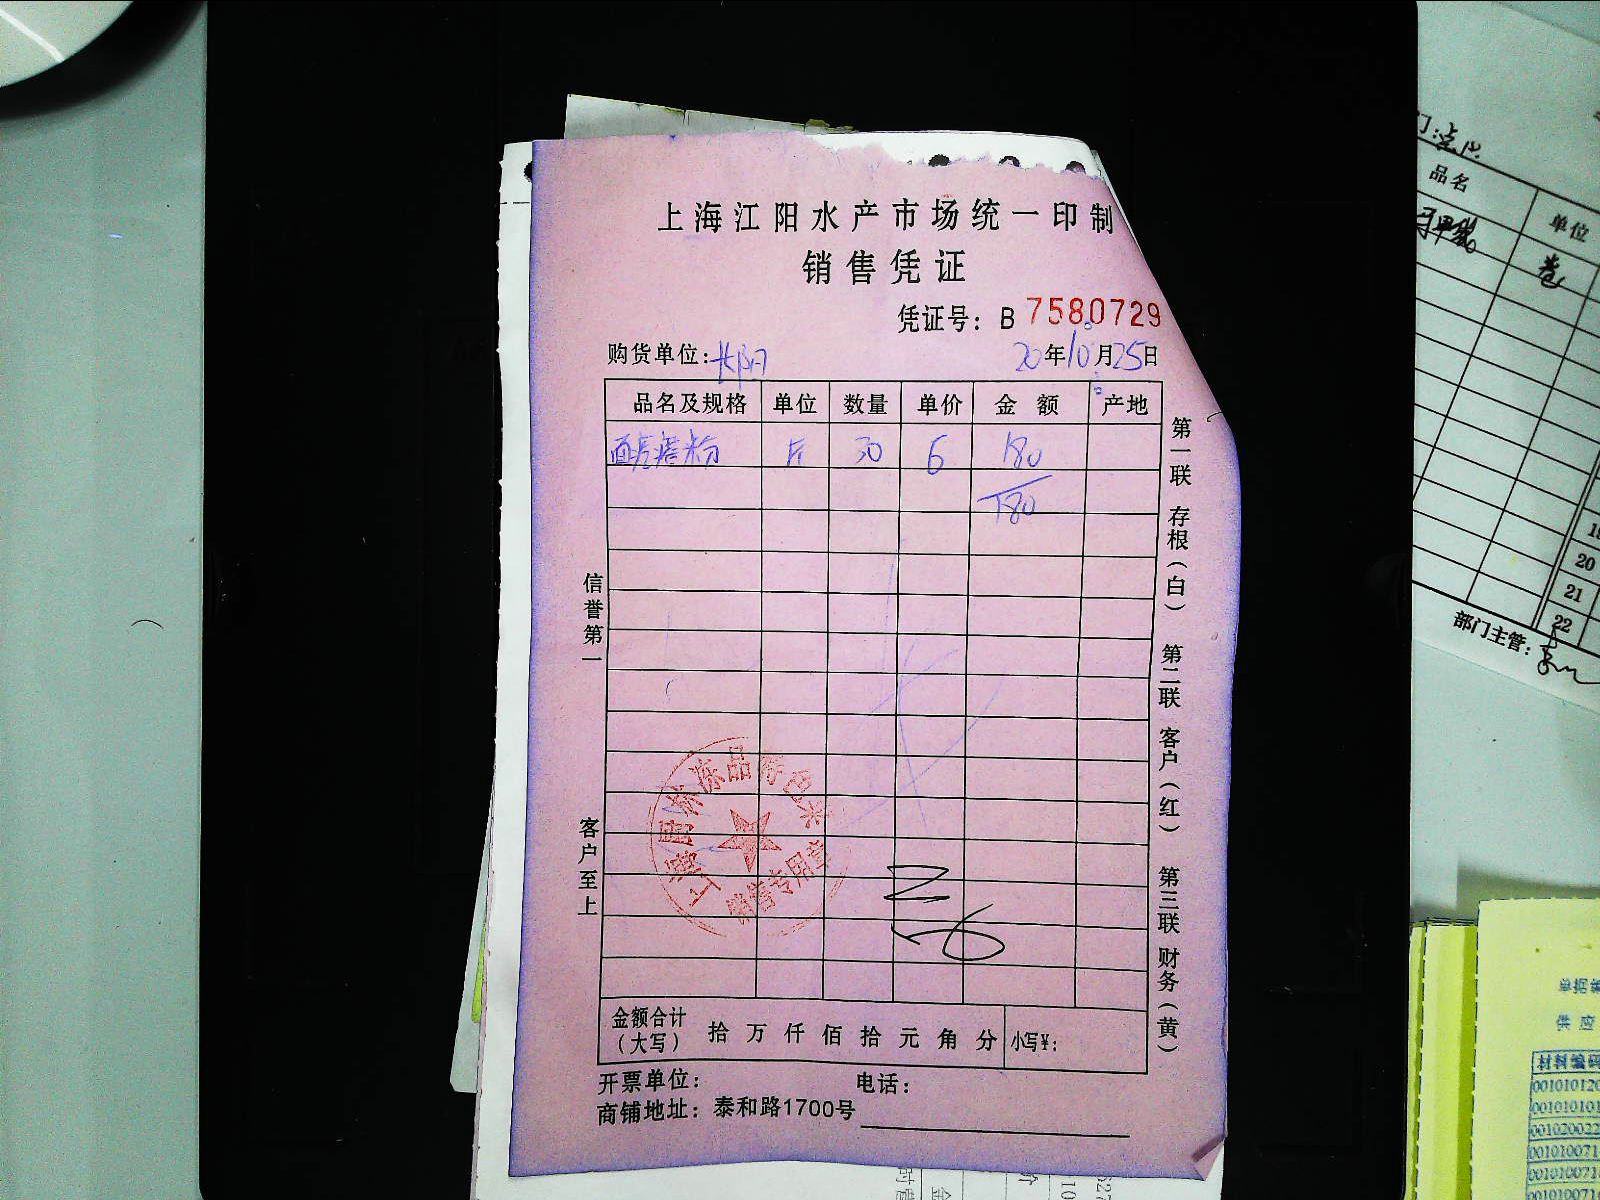 上海江阳水产市场统一印制
销售凭证
凭证号：B 7580729
购货单位： 20年10月25日
品名及规格 单位 数量 单价 金额 产地
斤 30 6 180
180
信誉第一
客户至上
第一联 存根（白） 第二联 客户（红） 第三联 财务（黄）
销售专用章
金额合计（大写） 拾 万 仟 佰 拾 元 角 分 小写¥：
开票单位： 电话：
商铺地址：泰和路1700号
品名 单位
卷
20
21
22
部门主管：
单据编
供应
材料编码
00101012
00101010
00102002
00101007
00101007